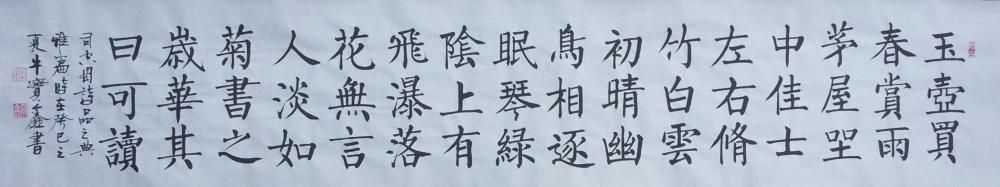 玉壺買
春賞雨
茅屋坐
中佳士
左右脩
竹白雲
初晴幽
鳥相逐
眠琴綠
陰上有
飛瀑落
花無言
人淡如
菊書之
歲華其
曰可讀
司空圖詩品之典
雅篇時在癸巳之
夏牛寶鑫書